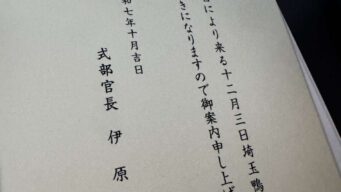 により来る十二月三日埼玉鴨
きになりますので御案内申し上げ
和七年十月吉日
式部官長 伊原